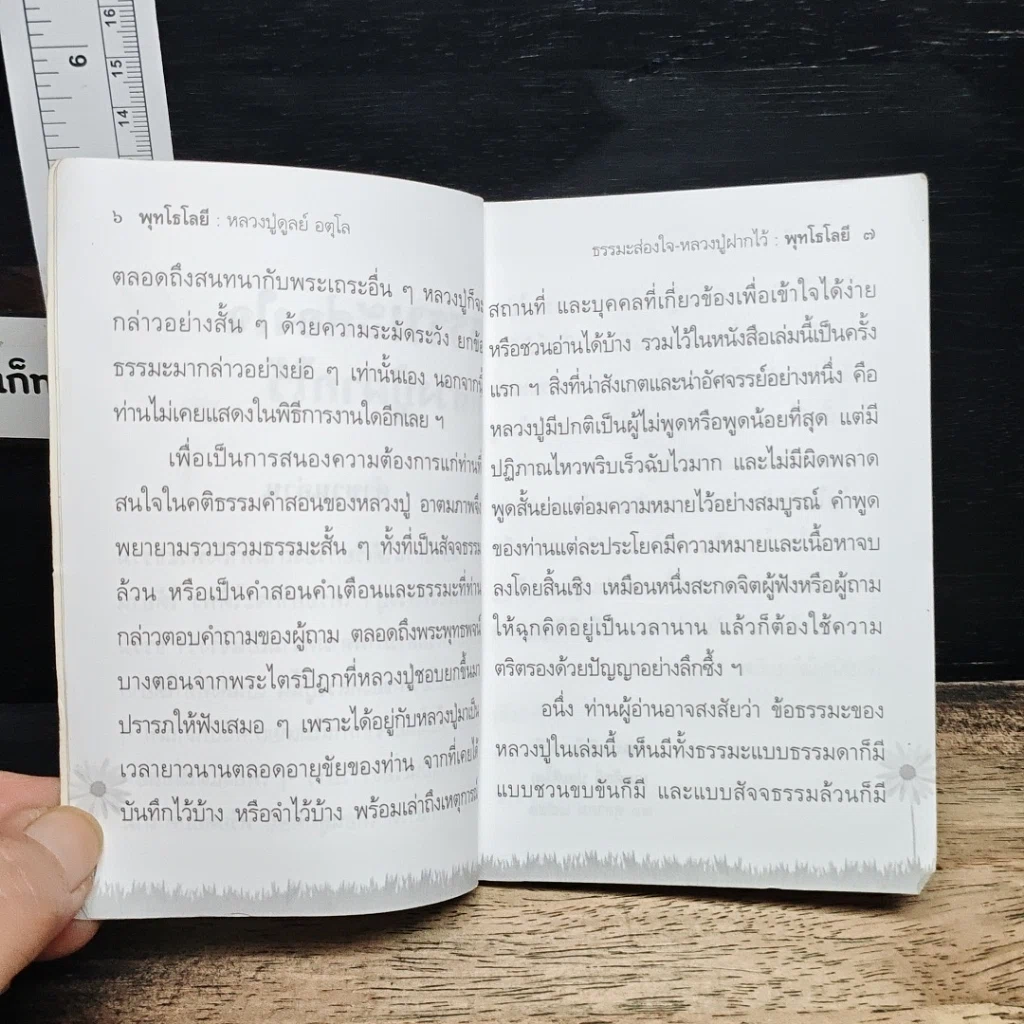 6
16
15
14
เก็ท
๖ พุทโธโลยี : หลวงปู่ดูลย์ อตุโล
ตลอดถึงสนทนากับพระเถระอื่น ๆ หลวงปู่ก็จะ
กล่าวอย่างสั้น ๆ ด้วยความระมัดระวัง
ธรรมะมากล่าวอย่างย่อ ๆ เท่านั้นเอง นอกจากนี้
ท่านไม่เคยแสดงในพิธีการงานใดอีกเลย ฯ
เพื่อเป็นการสนองความต้องการแก่ท่านที่
สนใจในคติธรรมคำสอนของหลวงปู่ อาตมภาพจึง
พยายามรวบรวมธรรมะสั้น ๆ ทั้งที่เป็นสัจธรรม
ล้วน หรือเป็นคำสอนคำเตือนและธรรมะที่ท่าน
กล่าวตอบคำถามของผู้ถาม ตลอดถึงพระพุทธพจน์
บางตอนจากพระไตรปิฎกที่หลวงปู่ชอบยกขึ้นมา
ปรารภให้ฟังเสมอ ๆ เพราะได้อยู่กับหลวงปู่มาเป็น
เวลายาวนานตลอดอายุขัยของท่าน จากที่เคยได้
บันทึกไว้บ้าง หรือจำไว้บ้าง พร้อมเล่าถึงเหตุการณ์
ธรรมะส่องใจ-หลวงปู่ฝากไว้ : พุทโธโลยี ๗
สถานที่ และบุคคลที่เกี่ยวข้องเพื่อเข้าใจได้ง่าย
หรือชวนอ่านได้บ้าง รวมไว้ในหนังสือเล่มนี้เป็นครั้ง
แรก ฯ สิ่งที่น่าสังเกตและน่าอัศจรรย์อย่างหนึ่ง คือ
หลวงปู่มีปกติเป็นผู้ไม่พูดหรือพูดน้อยที่สุด แต่มี
ปฏิภาณไหวพริบเร็วฉับไวมาก และไม่มีผิดพลาด
พูดสั้นย่อแต่อมความหมายไว้อย่างสมบูรณ์ คำพูด
ของท่านแต่ละประโยคมีความหมายและเนื้อหาจบ
ลงโดยสิ้นเชิง เหมือนหนึ่งสะกดจิตผู้ฟังหรือผู้ถาม
ให้ฉุกคิดอยู่เป็นเวลานาน แล้วก็ต้องใช้ความ
ตริตรองด้วยปัญญาอย่างลึกซึ้ง ฯ
อนึ่ง ท่านผู้อ่านอาจสงสัยว่า ข้อธรรมะของ
หลวงปู่ในเล่มนี้ เห็นมีทั้งธรรมะแบบธรรมดาก็มี
แบบชวนขบขันก็มี และแบบสัจจธรรมล้วนก็มี